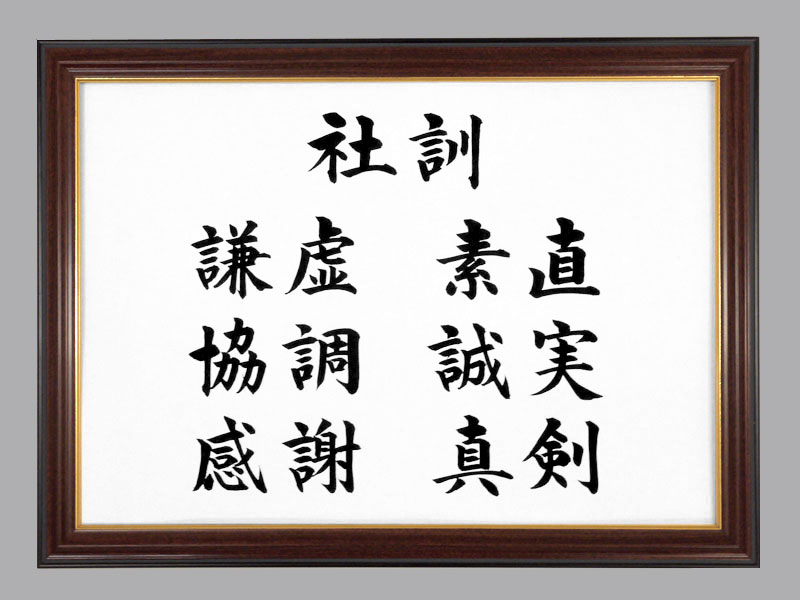 社訓
謙虚 素直
協調 誠実
感謝 真剣